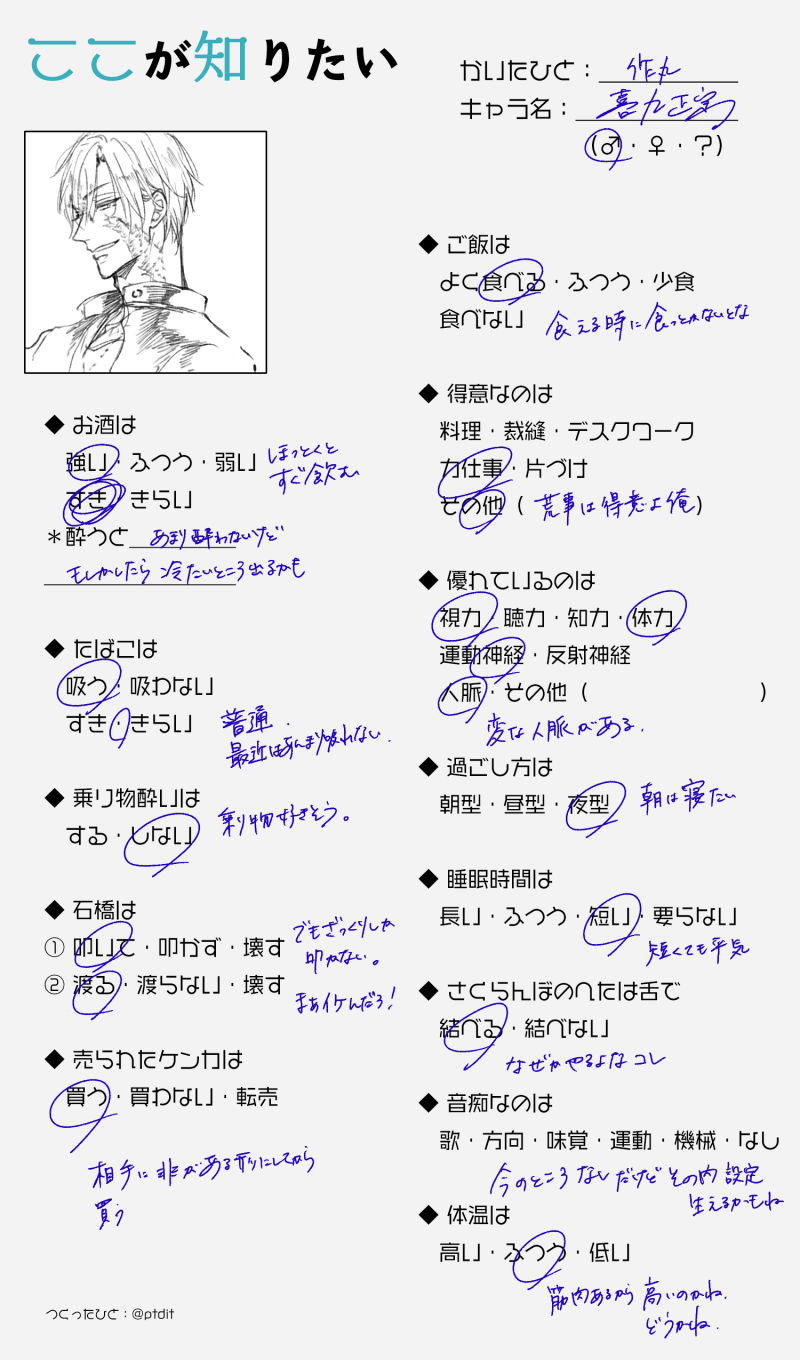 ここが知りたい
かいたひと：作丸
キャラ名：喜力正宗
(♂・♀・?)
◆ お酒は
強い・ふつう・弱い ほっとくと
すぐ飲む
すき・きらい
＊酔うと あまり酔わないけど
もしかしたら冷たいところ出るかも
◆ たばこは
吸う・吸わない
すき・きらい 普通.
最近はあんまり吸れない.
◆ 乗り物酔いは
する・しない 乗り物好きそう。
◆ 石橋は
① 叩いて・叩かず・壊す でもざっくりしか
叩かない。
② 渡る・渡らない・壊す
まあイケんだろ!
◆ 売られたケンカは
買う・買わない・転売
相手に非がある形にしてから
買う
つくったひと：@ptdit
◆ ご飯は
よく食べる・ふつう・少食
食べない 食える時に食っとかないとな
◆ 得意なのは
料理・裁縫・デスクワーク
力仕事・片づけ
その他 ( 荒事は得意よ俺 )
◆ 優れているのは
視力・聴力・知力・体力
運動神経・反射神経
人脈・その他 ( )
変な人脈がある.
◆ 過ごし方は
朝型・昼型・夜型 朝は寝たい
◆ 睡眠時間は
長い・ふつう・短い・要らない
短くても平気
◆ さくらんぼのへたは舌で
結べる・結べない
なぜかやるよな コレ
◆ 音痴なのは
歌・方向・味覚・運動・機械・なし
今のところ なし だけど その内 設定
生えるかもね
◆ 体温は
高い・ふつう・低い
筋肉あるから 高いのかね.
どうかね.